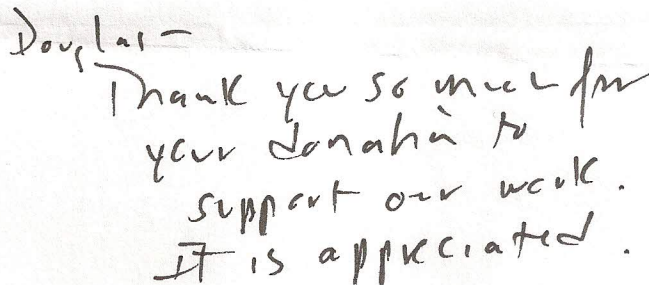 Douglas –
Thank you so much for
your donation to
support our work.
It is appreciated.